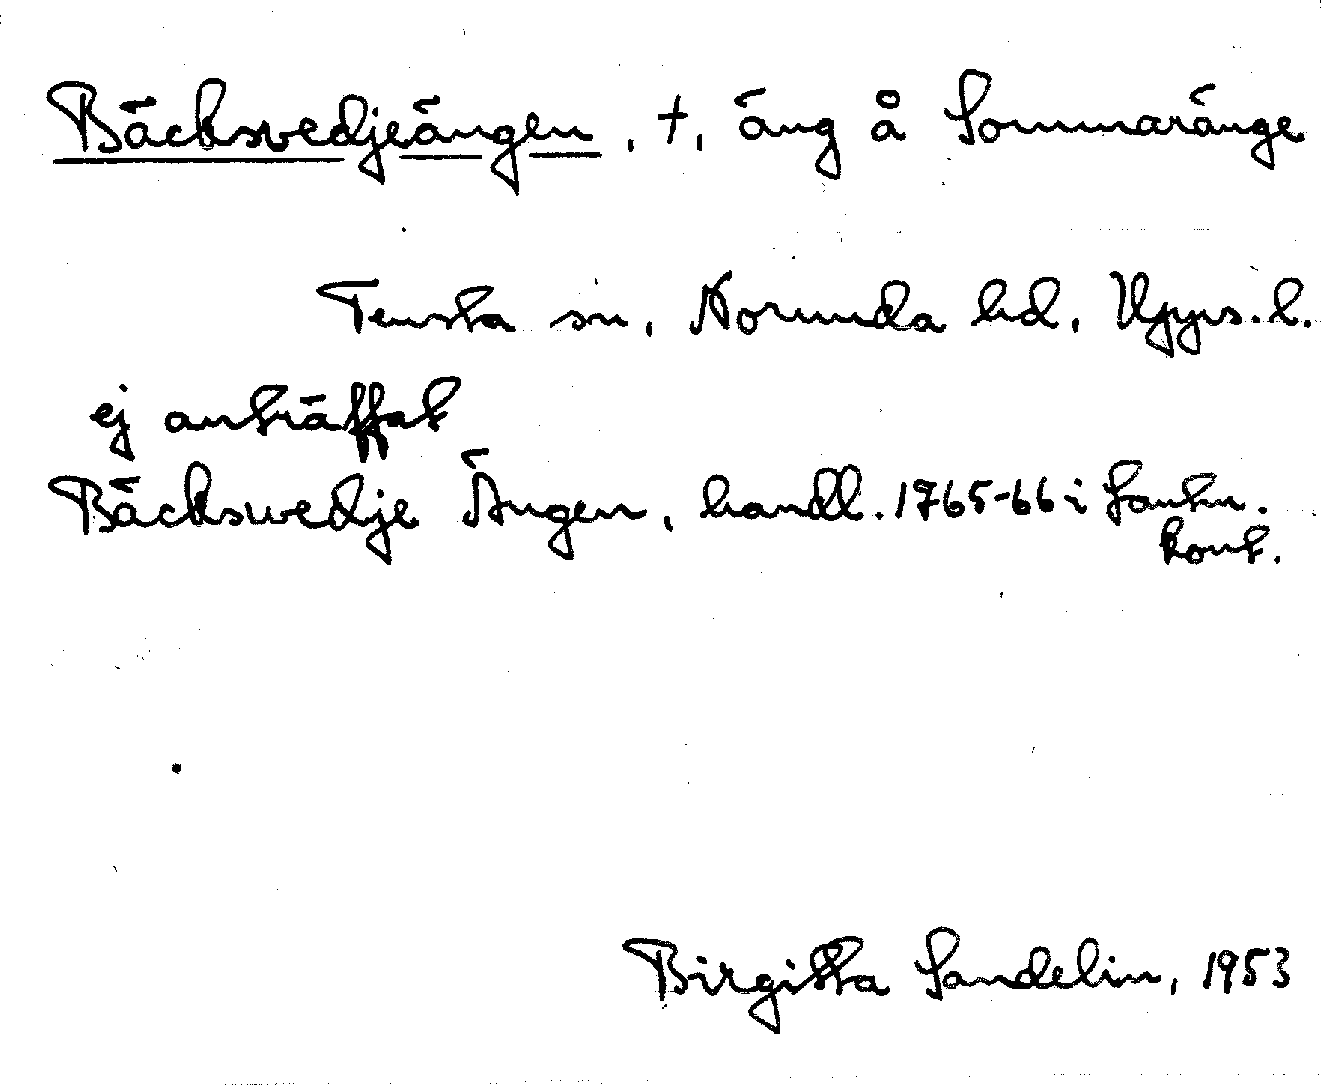 Bäcksvedjeängen, †, äng å Sommaränge
Tensta sn, Norunda hd, Upps. l.
ej anträffat
Bäckswedje Ängen, handl. 1765-66 i Lantm.
kont.
Birgitta Sandelin, 1953